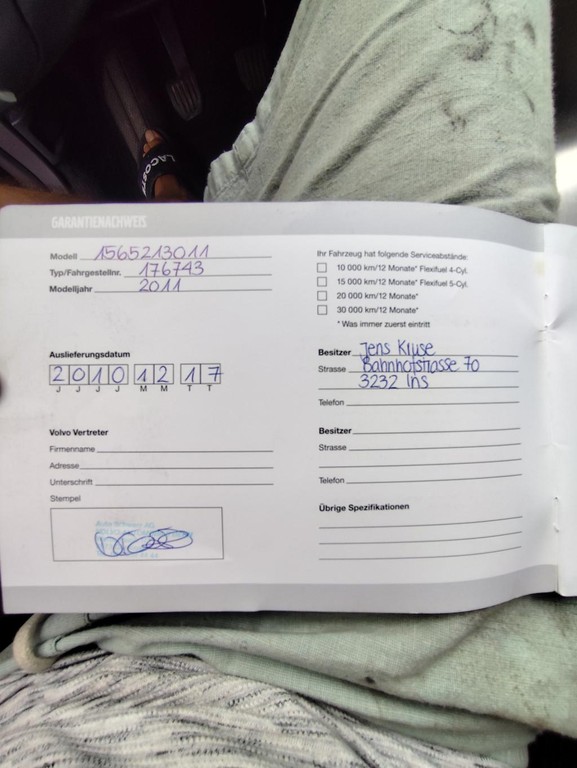 LACOSTE
GARANTIENACHWEIS
Modell 1565213011
Typ/Fahrgestellnr. 176743
Modelljahr 2011
Auslieferungsdatum
2 0 1 0 1 2 1 7
J J J J M M T T
Volvo Vertreter
Firmenname
Adresse
Unterschrift
Stempel
Ihr Fahrzeug hat folgende Serviceabstände:
10 000 km/12 Monate* Flexifuel 4-Cyl.
15 000 km/12 Monate* Flexifuel 5-Cyl.
20 000 km/12 Monate*
30 000 km/12 Monate*
* Was immer zuerst eintritt
Besitzer Jens Kruse
Strasse Bahnhofstrasse 70
3232 Ins
Telefon
Besitzer
Strasse
Telefon
Übrige Spezifikationen